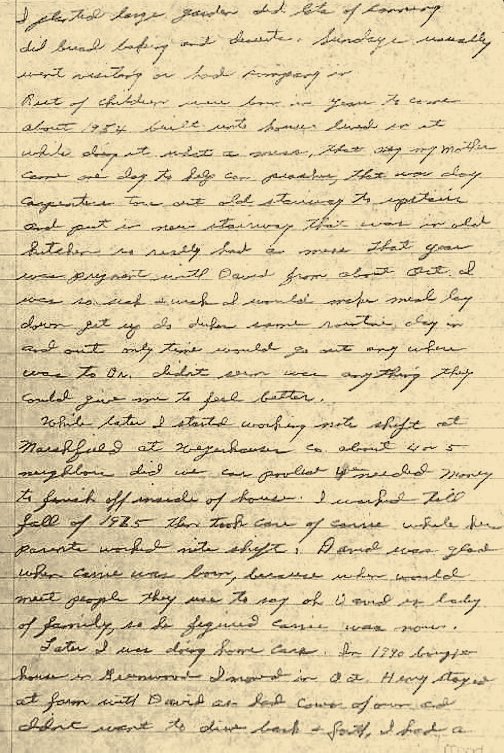 I planted large garden did lots of canning
did bread baking and desserts. Sundays usually
went visiting or had company in
Rest of children were born in years to come
about 1954 built unto house lived in it
while doing it what a mess, that my Mother
came one day to help can peaches, that was day
carpenters tore out old stairway to upstairs
and put in new stairway that was in old
kitchen so really had a mess that year
was pregnant with David from about Oct. I
was so sick & weak I would make meal lay
down get up do dishes same routine, day in
and out only time would go out any where
was to Dr. didnt seem was anything they
could give me to feel better.
While later I started working nite shift at
Marshfield at Weyerhauser Co. about 4 or 5
neighbors did we car pooled needed money
to finish off inside of house. I worked till
fall of 1985 then took care of carrie while her
parents worked nite shift. David was glad
when carrie was born, because when would
meet people they use to say oh David is baby
of family, so he figured carrie was now.
Later I was doing home care. In 1990 bought
house in Greenwood I moved in Oct Henry stayed
at farm with David as had cows of own and
didnt want to drive back & forth, I had a